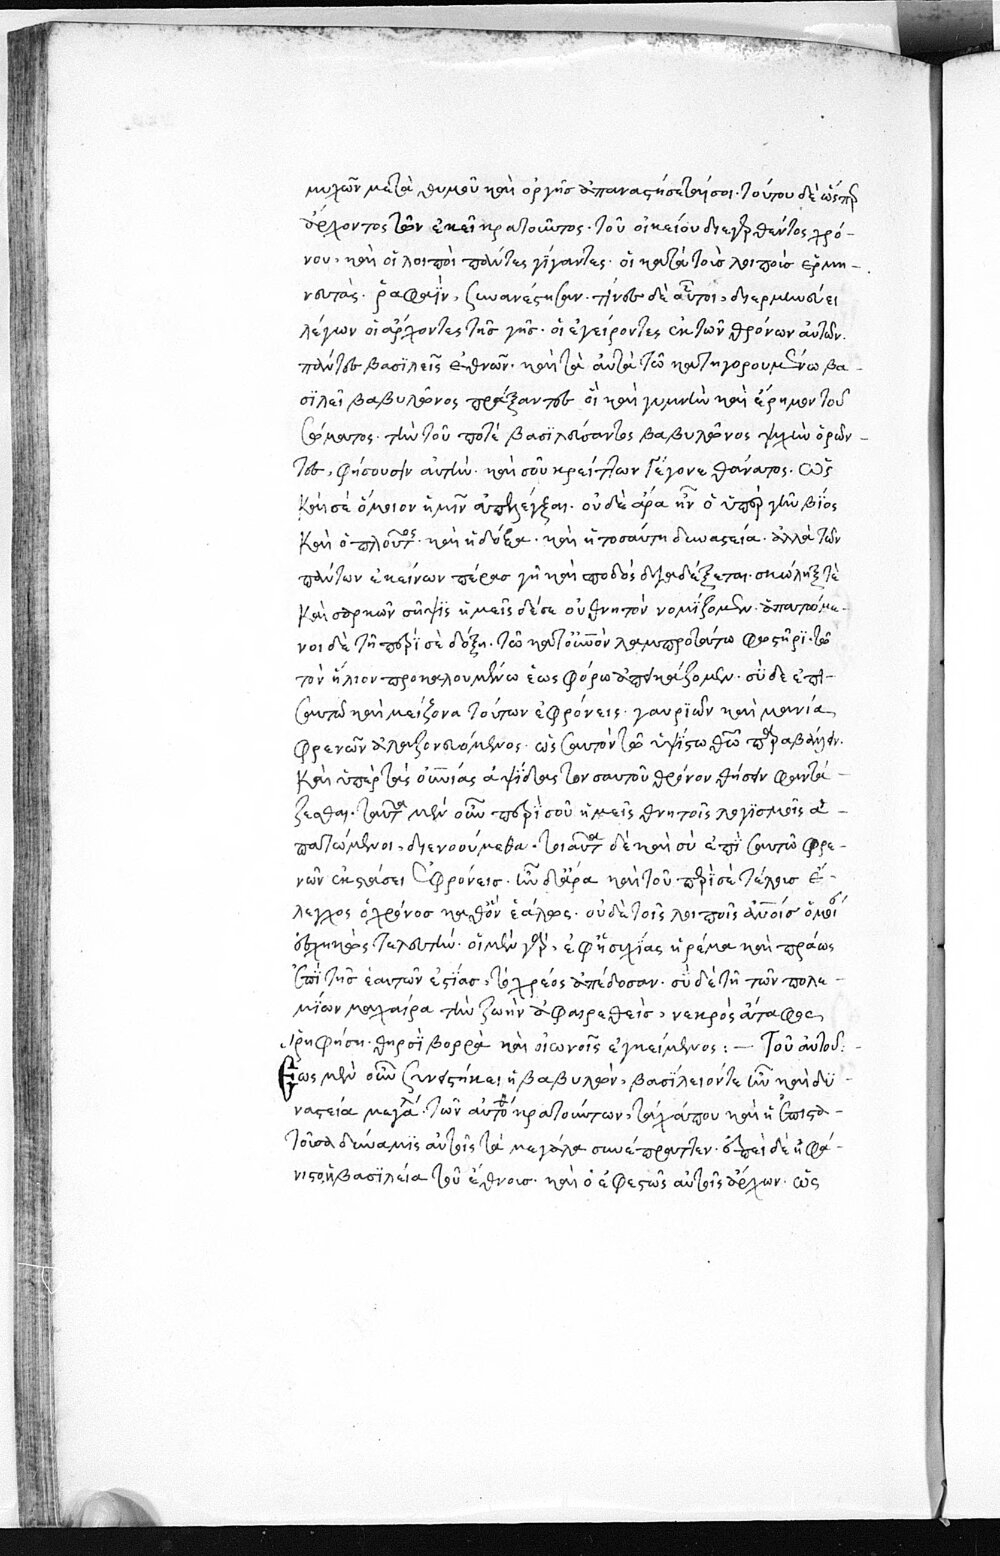 μυχῶν μετὰ θυμοῦ καὶ ὀργῆς ἐπαναστήσεταί σοι· τούτου δὲ ὥσπερ
ἄρχοντος τῶν ἐκεῖ κρατοῦντος· τοῦ οἰκείου διεγερθέντος χρό-
νου, καὶ οἱ λοιποὶ πάντες γίγαντες· οἱ κατὰ τοὺς λοιποὺς ἑρμη-
νευτὰς· ῥαφαῒν, συνανέστησαν· τίνες δὲ οὗτοι, διερμηνεύει
λέγων οἱ ἄρχοντες τῆς γῆς· οἱ ἐγείροντες ἐκ τῶν θρόνων αὐτῶν
πάντας βασιλεῖς ἐθνῶν· καὶ τὰ αὐτὰ τῶ κατηγορουμένω βα-
σιλεῖ βαβυλῶνος πράξαντες οἳ καὶ γυμνὴν καὶ ἔρημον τοῦ
σώματος· τὴν τοῦ ποτὲ βασιλεύσαντος βαβυλῶνος ψυχὴν ὁρῶν-
τες, φήσουσιν αὐτὴν· καὶ σοῦ κρείττων γέγονε θάνατος· ὡς
καὶ σὲ ὅμοιον ἡμῖν ἀπελέγξαι· οὐδὲ ἄρα ἦν ὁ ὑπὲρ γῆν βίος
καὶ ὁ πλοῦτος· καὶ ἡ δόξα· καὶ ἡ τοσαύτη δυναστεία· ἀλλὰ τῶν
πάντων ἐκείνων πέρας γῆ καὶ σποδὸς διαδέξεται· σκώληξ τὲ
καὶ σαρκῶν σῆψις ἡμεῖς δέ σε οὐ θνητὸν νομίζομεν· ἀπατώμε-
νοι δὲ τῆ περὶ σὲ δόξη· τῶ κατ' οὐρανὸν λαμπροτάτω φωστῆρι· τῶ
τὸν ἥλιον προκαλουμένω ἑωσφόρω ἀπεικάζομεν· σὺ δὲ ἐπὶ
σαυτῶ καὶ μείζονα τούτων ἐφρόνεις· γαυριῶν καὶ μανία
φρενῶν ἀλαζονευόμενος· ὡς σαυτὸν τῶ ὑψίστω θεῶ παραβάλλειν·
καὶ ὑπὲρ τὰς οὐρανίας ἁψίδας τὸν σαυτοῦ θρόνον θήσειν φαντά-
ζεσθαι· ταῦτα μὲν οὖν περὶ σοῦ ἡμεῖς θνητοῖς λογισμοῖς ἀ-
πατώμενοι, διενοούμεθα· τοιαῦτα δὲ καὶ σὺ ἐπὶ σαυτῶ φρε-
νῶν ἐκστάσει ἐφρόνεις· νῦν δ' ἄρα καὶ τοῦ περὶ σὲ τέλους ἔ-
λεγχος ὁ χρόνος καθ' ὃν ἑάλως· οὐδὲ τοῖς λοιποῖς ἀνθρώποις ὁμοί
ἐσχηκὼς τελευτὴν· οἱ μὲν γὰρ, ἐφ' ἡσυχίας ἠρέμα καὶ πράως
ἐπὶ τῆς ἑαυτῶν ἑστίας, τὸ χρέος ἀπέδοσαν· σὺ δὲ τῆ τῶν πολε-
μίων μαχαίρα τὴν ζωὴν ἀφαιρεθεὶς, νεκρὸς ἄταφος
ῥιφήση· θηρσὶ βορρὰ καὶ οἰωνοῖς ἐγκείμενος :— Τοῦ αὐτοῦ:
Ἕως μὲν οὖν συνεστήκει ἡ βαβυλὼν, βασίλειόν τε ἦν καὶ δυ-
ναστεία μεγάλη· τῶν αὐτόθι κρατούντων, τάχα που καὶ ἡ ἐπιστα-
τοῦσα δύναμις αὐτοῖς τὰ μεγάλα συνέπραττεν· ἐπεὶ δὲ ἠφά-
νιστο ἡ βασιλεία τοῦ ἔθνους· καὶ ὁ ἐφεστὼς αὐτοῖς ἄρχων· ὡς